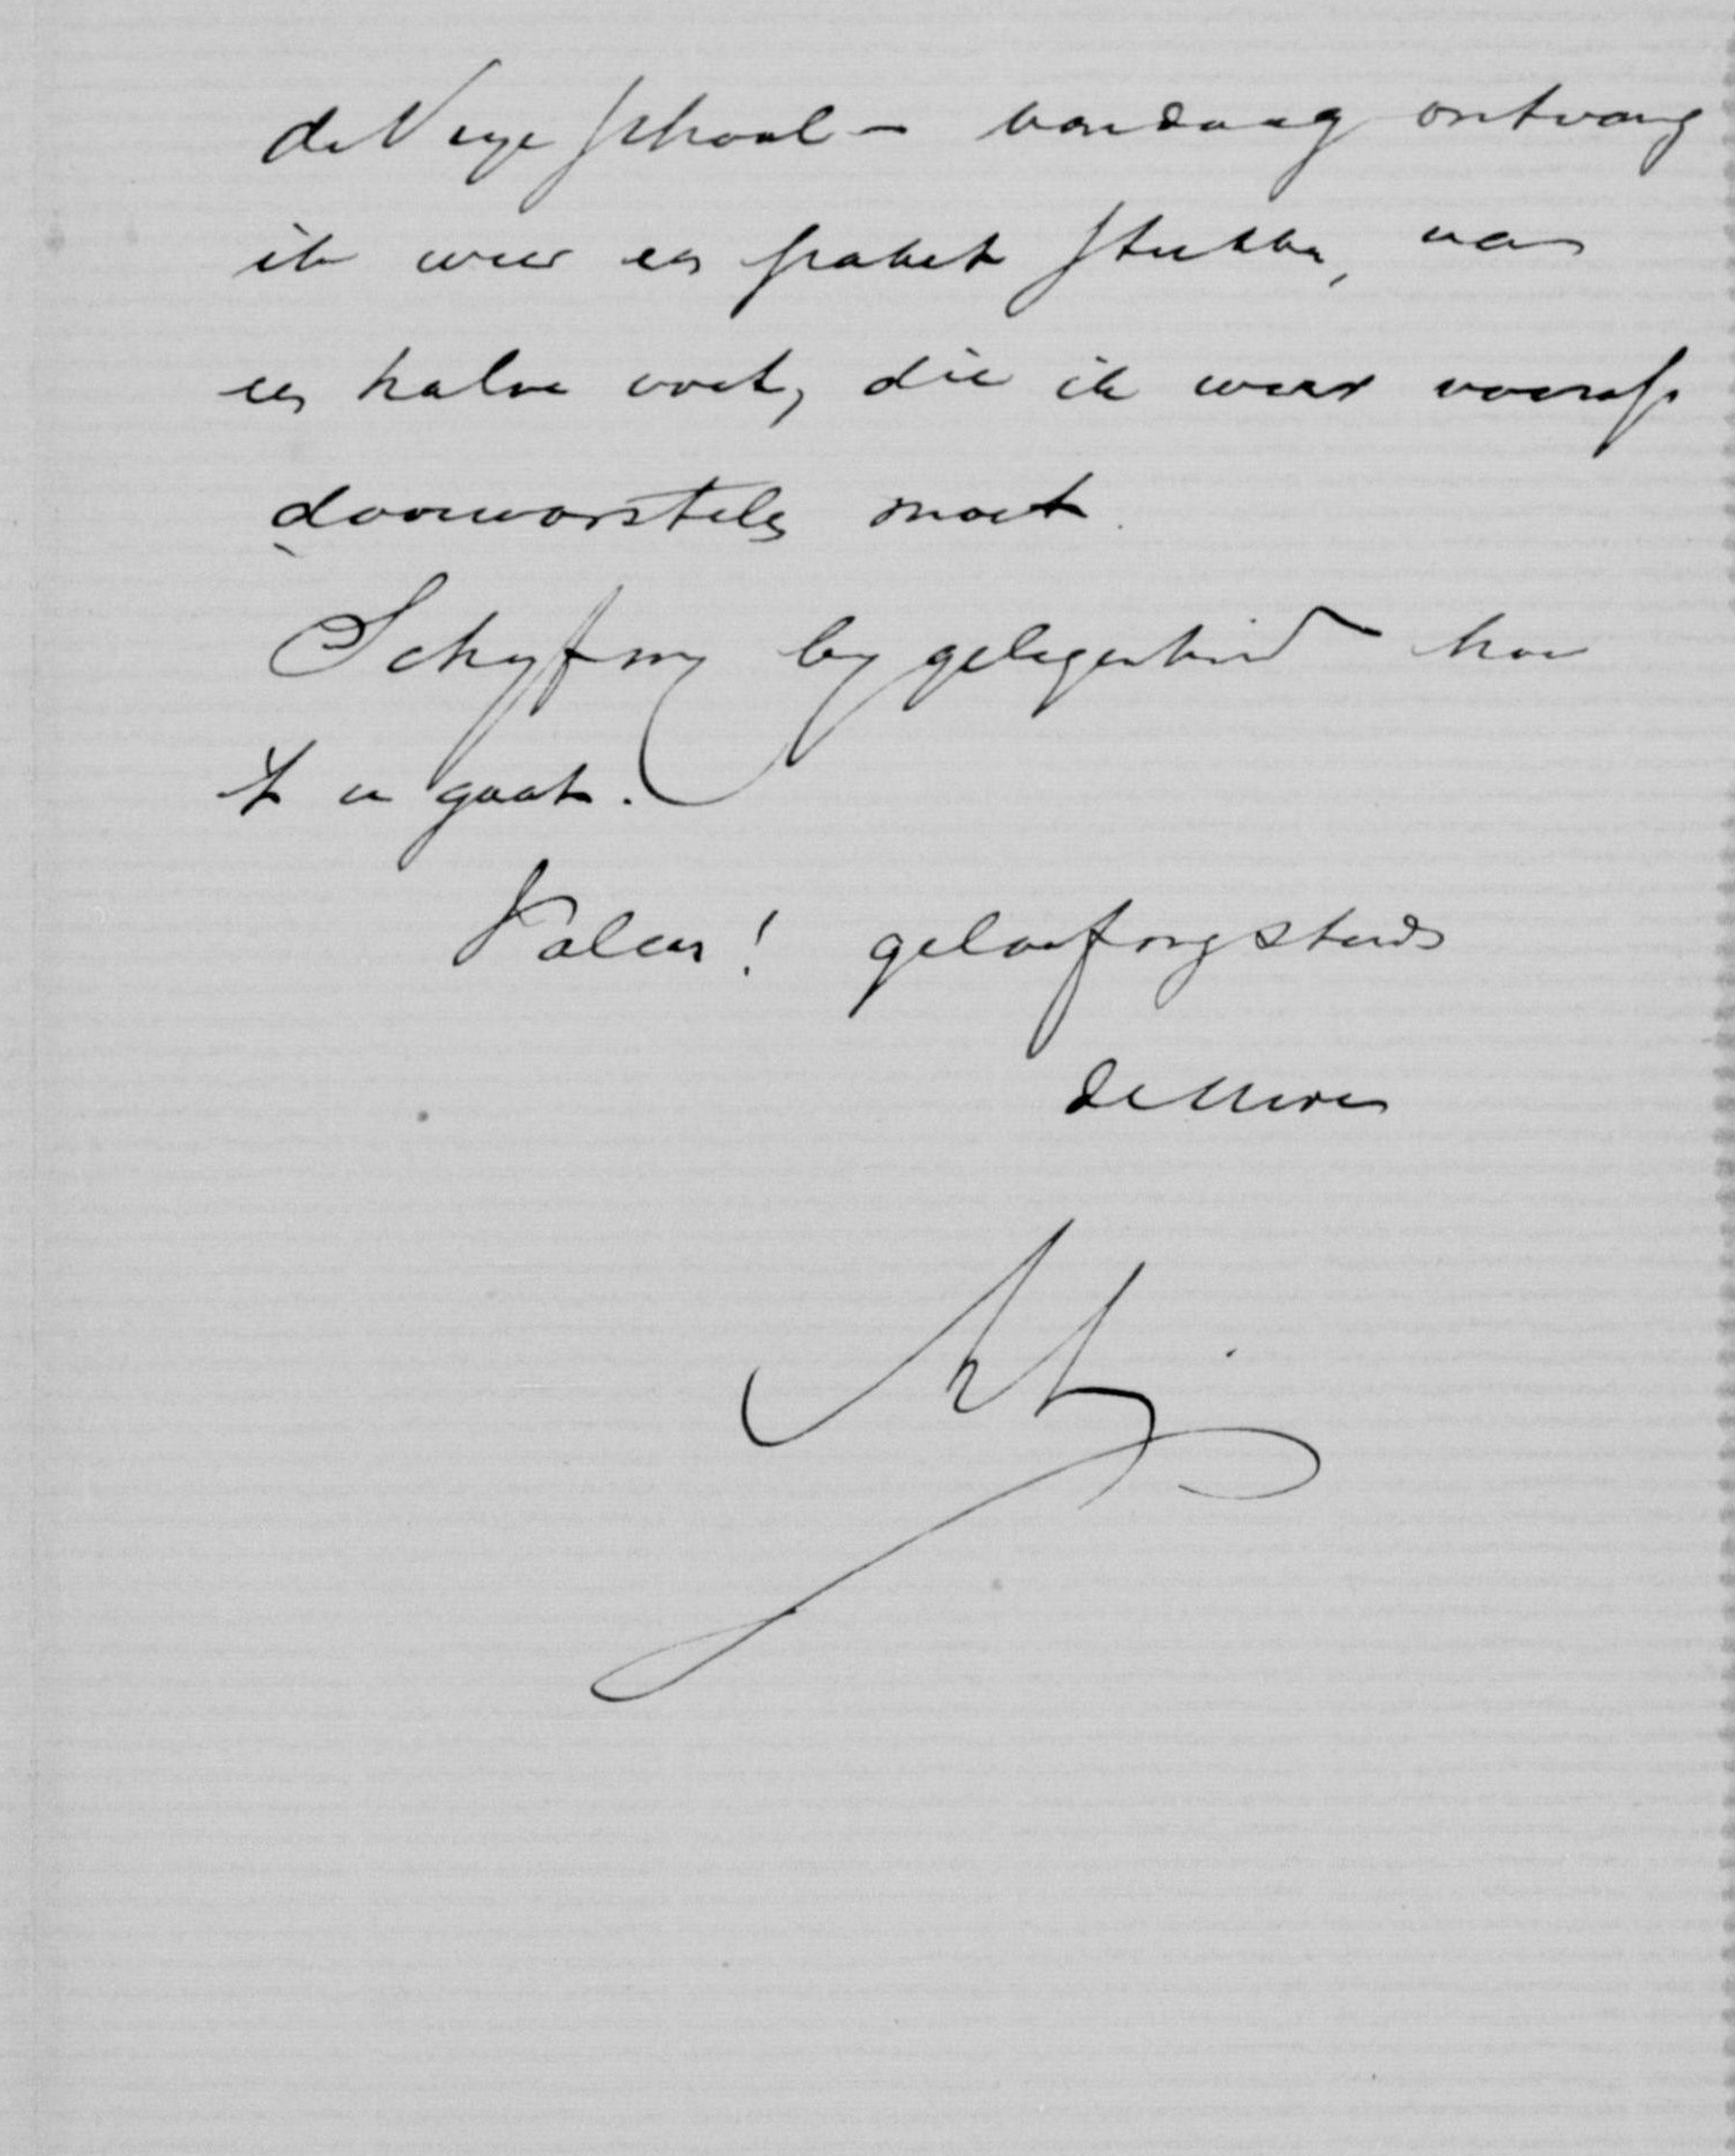 de Vrije school – vandaag ontvang
ik weer een paket stukken, van
een halve voet, die ik weer vooraf
doorworstelen moet.
Schryf my by gelegenheid hoe
't u gaat.
Valeas! geloof my steeds
de Uwe